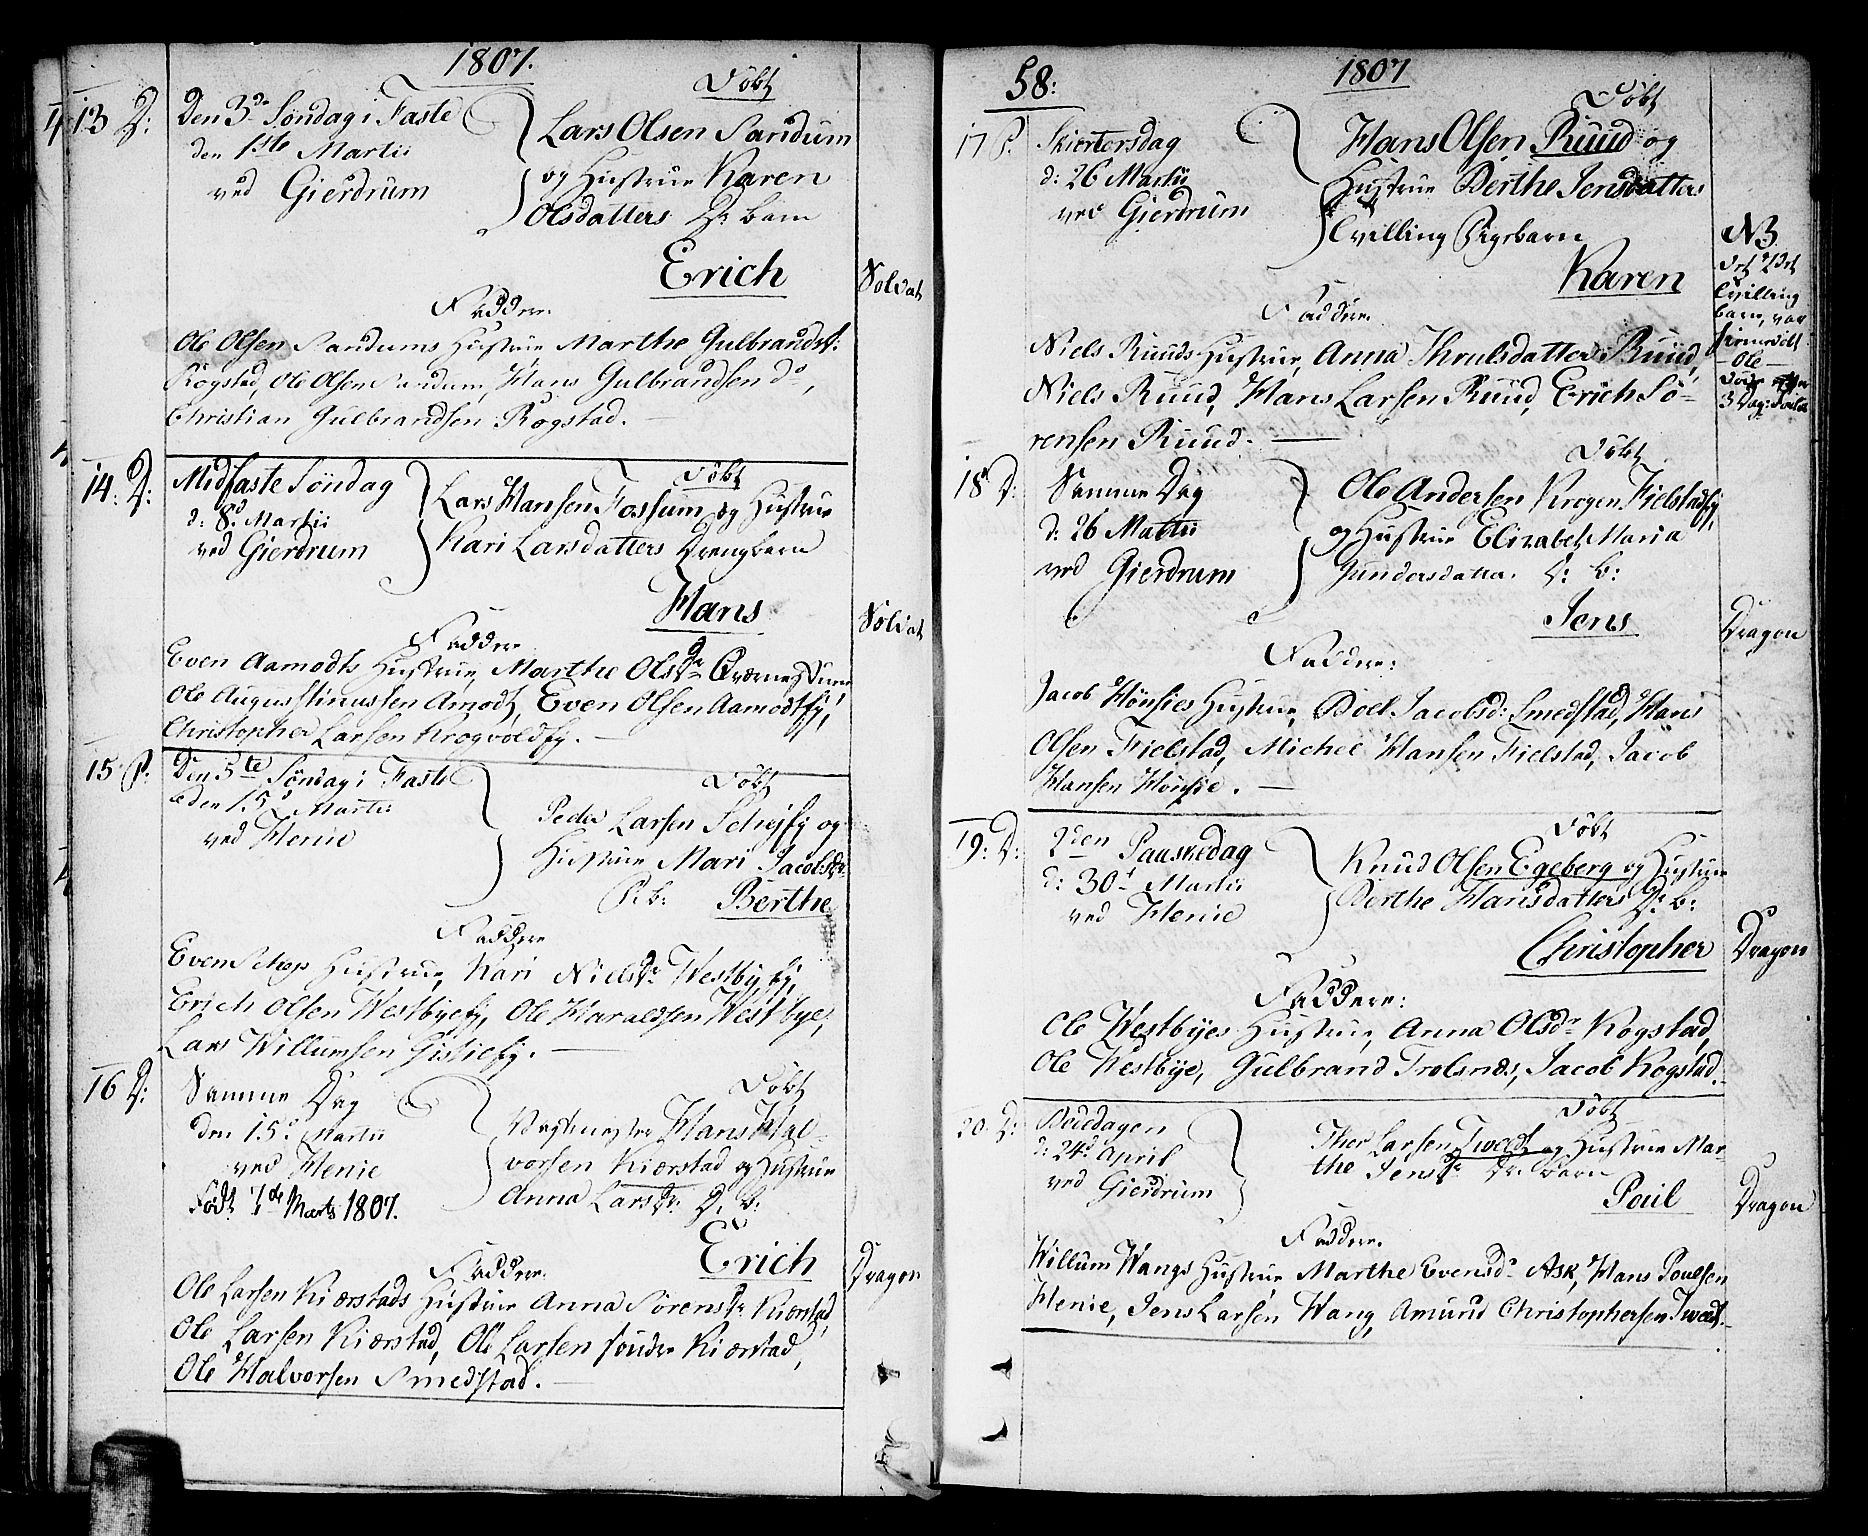 1807.
13 D:
Den 3de Søndag i Faste
den 1ste Martii
ved Gierdrum
Døbt
Lars Olsen Sandum
og Hustrue Karen
Olsdatters D: barn
Erich
Soldat
Faddere.
Ole Olsen Sandums Hustrue, Marthe Gulbrandsd:
Rogstad, Ole Olsen Sandum, Hans Gulbrandsen do,
Christian Gulbrandsen Rogstad.
14. D:
Midfaste Søndag
d: 8d Martii
ved Gierdrum
Døbt
Lars Hansen Fossum og Hustrue
Kari Larsdatters Drengbarn
Hans
Soldat
Faddere
Even Aamodts Hustrue, Marthe Olsdr
Ole Augustinussen Amodt, Even Olsen Aamodt
Christopher Larsen Krogvold
15 P.
Den 5te Søndag i Faste
den 15d Martii
ved Henie
Døbt
Peder Larsen og
Hustrue Mari Jacobsdr
P: b: Berthe
Faddere
Even Hustrue, Kari Nielsdr Westby
Erich Olsen Westbye Ole Haraldsen Westbye,
Lars Willumsen
16 D:
Samme Dag
den 15d Martii
ved Henie
Født 7de Marts 1807.
Døbt
Hans Hal-
vorsen Kiærstad og Hustrue
Anna Larsdr: D. b:
Erich
Dragon
Faddere.
Ole Larsen Kiærstads Hustrue Anna Sørensdr Kiærstad,
Ole Larsen Kiærstad, Ole Larsen søndre Kiærstad,
Ole Halvorsen Smedstad.
58:
1807
17 P.
Skiertorsdag
d: 26 Martii
ved Gierdrum
Døbt
Hans Olsen Ruud og
Hustrue Berthe Jensdatters
Tvilling Pigebarn
Karen
NB
Det 2det
Tvilling
barn, var
hiemedøbt
Ole
døde efter
3 Dag:
Faddere.
Niels Ruuds Hustrue, Anna Thrulsdatter Ruud,
Niels Ruud, Hans Larsen Ruud, Erich Sö-
rensen Ruud.
18 D:
Samme Dag
d: 26 Martii
ved Gierdrum
Døbt
Ole Andersen Krogen Fielstad
og Hustrue Elizabet Maria
Gundersdatter. D: b:
Jens
Dragon
Faddere:
Jacob Hønsies Hustrue, Boel Jacobsd: Smedstad, Hans
Olsen Fielstad, Michel Hansen Fielstad, Jacob
Hansen Hønsie.
19: D:
2den Paaskedag
d: 30d Martii
ved Henie
Døbt
Knud Olsen Egeberg og Hustrue
Berthe Hansdatters D: b:
Christopher
Dragon
Faddere:
Ole Westbyes Hustrue, Anna Olsdr Kogstad,
Ole Westbye, Gulbrand Trolsnæs, Jacob Kogstad.
20. D:
Bededagen
d: 24d April
ved Gierdrum
Døbt
Thor Larsen Tweet og Hustrue Mar-
the Jensdr Dr: barn
Poul
Dragon
Faddere.
Willum Wangs Hustrue Marthe Evensdr Ask, Hans Poulsen
Henie, Jens Larsen Wang, Amund Christophersen Tweet.